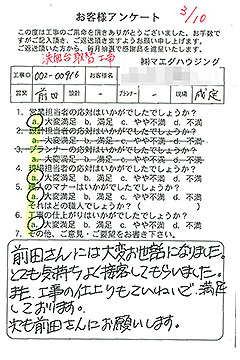 お客様アンケート
3/10
この度は工事のご用命を頂きありがとうございました。お手数で
すがご記入頂き、ご返送頂きますようお願い申し上げます。
ご返送頂いた方から、毎月抽選で感謝品を進呈いたします。
洗面台取替工事
㈱マエダハウジング
工事ID 002-00916 お客様名
営業 前田 設計 − プランナー − 現場 成定
1. 営業担当者の応対はいかがでしたでしょうか?
a. 大変満足 b. 満足 c. やや不満 d. 不満
2. 設計担当者の応対はいかがでしたでしょうか?
a. 大変満足 b. 満足 c. やや不満 d. 不満
3. プランナーの応対はいかがでしたでしょうか?
a. 大変満足 b. 満足 c. やや不満 d. 不満
4. 現場担当者の応対はいかがでしたでしょうか?
a. 大変満足 b. 満足 c. やや不満 d. 不満
5. 職人のマナーはいかがでしたでしょうか?
a. 大変満足 b. 満足 c. やや不満 d. 不満
それはどの職人でしょうか?( )
6. 工事の仕上がりはいかがでしたでしょうか?
a. 大変満足 b. 満足 c. やや不満 d. 不満
7. その他、ご意見・ご要望をお書き下さい。
前田さんには大変お世話になりました。
とても気持ちよく接客してもらいました。
また、工事の仕上りもていねいで、満足
しております。
次も前田さんにお願いします。